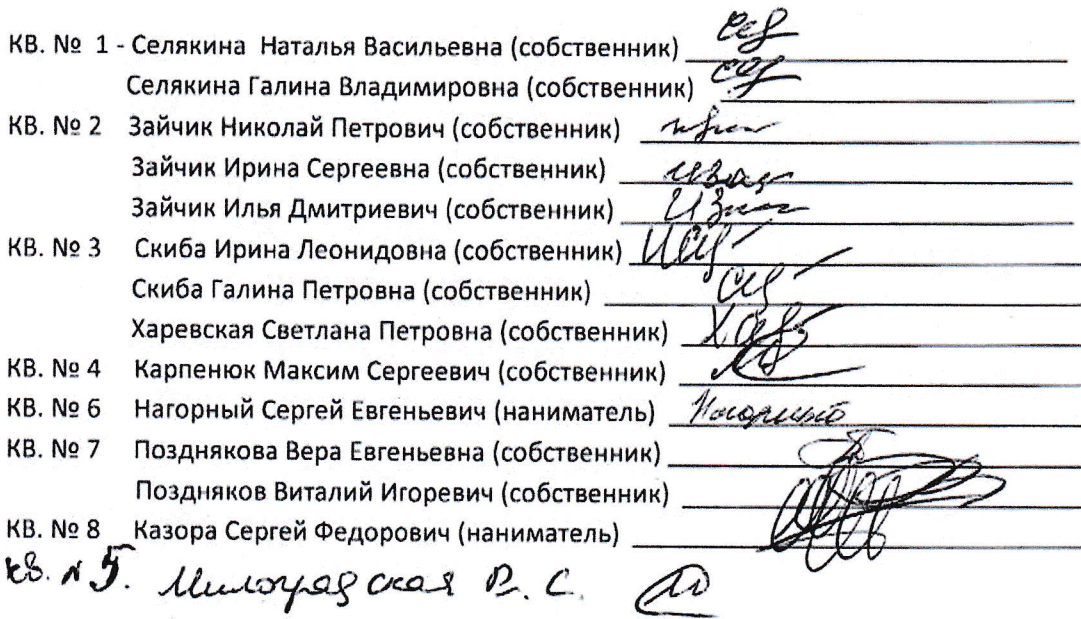 КВ. № 1 - Селякина Наталья Васильевна (собственник)
Селякина Галина Владимировна (собственник)
КВ. № 2 Зайчик Николай Петрович (собственник)
Зайчик Ирина Сергеевна (собственник)
Зайчик Илья Дмитриевич (собственник)
КВ. № 3 Скиба Ирина Леонидовна (собственник)
Скиба Галина Петровна (собственник)
Харевская Светлана Петровна (собственник)
КВ. № 4 Карпенюк Максим Сергеевич (собственник)
КВ. № 6 Нагорный Сергей Евгеньевич (наниматель)
КВ. № 7 Позднякова Вера Евгеньевна (собственник)
Поздняков Виталий Игоревич (собственник)
КВ. № 8 Казора Сергей Федорович (наниматель)
кв. № 5. Милоградская В. С.